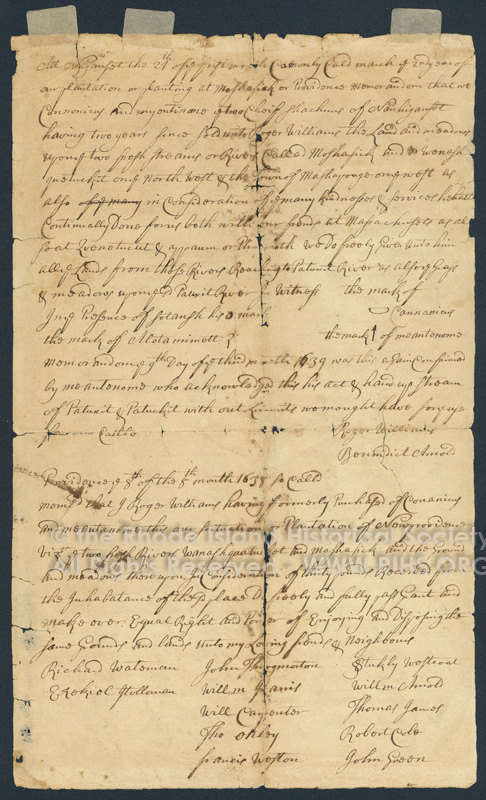 At Nanhiganset the 24th of ye first month Commonly Cald march ye 2nd year of
our plantation or planting at Moshasick or Providence Memorandom that we
Connonicus and myentinome ye two Cheif Sachims of Nanhiganset
having two years since sold unto Roger Williams the Land and meadows
upon ye two fresh streams or Rivers Called Moshasick and wanasq
quetuckit on ye North West & the Town of Mashapauge on ye west as
also in Consideration of ye many Kindnesses & services he hath
Continually Done for us both with our frends at Masachusets as al
so at & apaum or Plimouth we do freely Give unto him
all ye Lands from those Rivers Reaching to Patuxit River as also ye Grass
& meadows upon ye said Patuxit River In Witness the mark of
Connanicus
In ye Presence of Sotaash his mark
the mark of Assotammett
the mark of meantenome
Memorandom ye 9th Day of ye third month 1639 was this again Confirmed
by meautenome who acknowledged this his act & hand up Stream
of Patuxit & Patuckit with out Limmits we mought have for ye use
of Cattle
Roger Williams
Benedict Arnold
Providence ye 8th of the 8th month 1638 so Calld
memord that I Roger Williams having formerly Purchased of Conanicus
and meantanome this our scituation or Plantation of Newprovidence
Vizt ye two fresh Rivers wanasquatucket and Moshasick and the Ground
and meadows there upon In Consideration of thirty pounds Received from
the Inhabatance of the sd place Do freely and fully pass Grant and
make over Equal Right and Power of Enjoying and Disposing the
same Grounds and lands Unto my Loving frends & Neighbours
Richard Wateman
John Throgmorton
Stukly Westcoat
Ezekiel Holloman
Willm Harris
Willm Arnold
Will Carpenter
Thomas James
Tho Olney
Robert Cole
Francis Weston
John Green
© the Rhode Island Historical Society
All Rights Reserved - WWW.RIHS.ORG